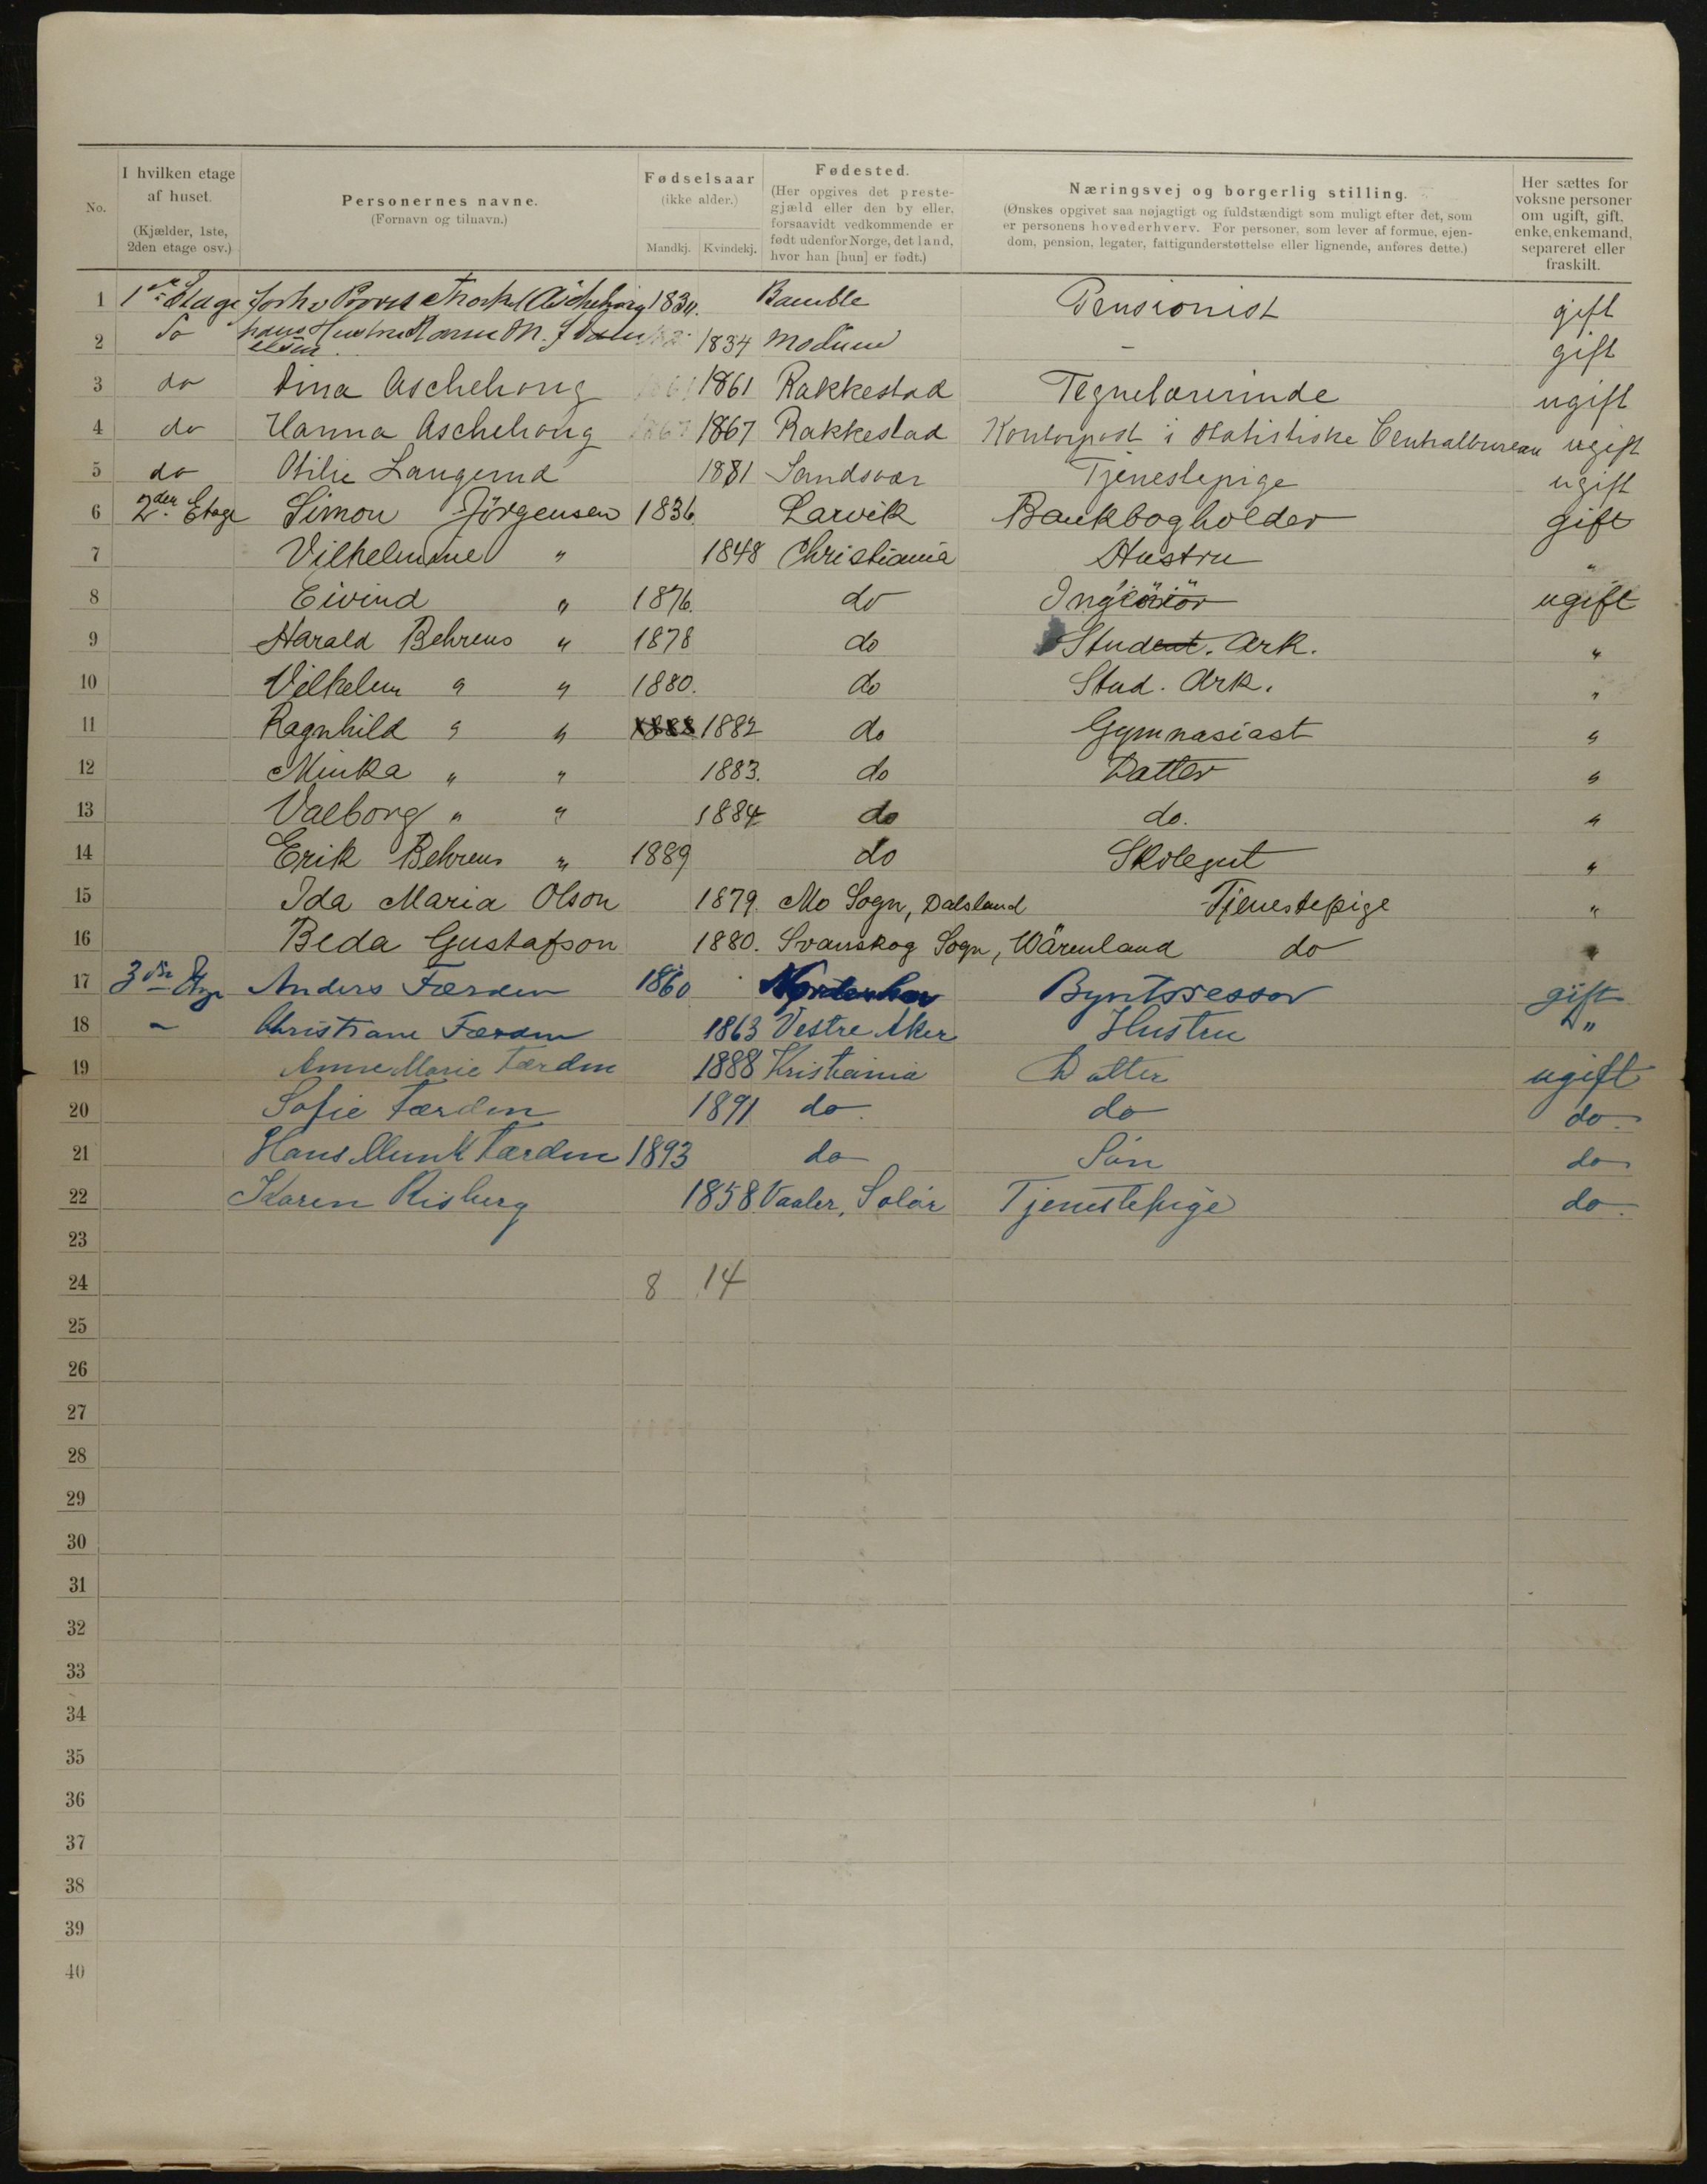 No.
I hvilken etage af huset. (Kjælder, 1ste, 2den etage osv.)
Personernes navne. (Fornavn og tilnavn.)
Fødselsaar (ikke alder.) Mandkj. Kvindekj.
Fødested. (Her opgives det prestegjæld eller den by eller, forsaavidt vedkommende er født udenfor Norge, det land, hvor han [hun] er født.)
Næringsvej og borgerlig stilling. (Ønskes opgivet saa nøjagtigt og fuldstændigt som muligt efter det, som er personens hovederhverv. For personer, som lever af formue, ejendom, pension, legater, fattigunderstøttelse eller lignende, anføres dette.)
Her sættes for voksne personer om ugift, gift, enke, enkemand, separeret eller fraskilt.
1 Etage 1830. Bamble Pensionist gift
2 Do hans Hustru 1834 Modum – gift
3 do Dina Aschehoug 1861 Rakkestad Tegnelærerinde ugift
4 do Hanna Aschehoug 1867 Rakkestad Kontorpost i statistiske Centralbureau ugift
5 do Otilie Langerud 1881 Sandsvær Tjenestepige ugift
6 2den Etage Simon Jörgensen 1836 Larvik Bankbogholder gift
7 Vilhelmine " 1848 Christiania Hustru "
8 Eivind " 1876. do ugift
9 Harald Behrens " 1878 do Student. Ark. "
10 Vilhelm " " 1880. do Stud. Ark. "
11 Ragnhild " " 1888 1882 do Gymnasiast "
12 Minka " " 1883. do Datter "
13 Valborg " " 1884 do do. "
14 Erik Behrens " 1889 do Skolegut "
15 Ida Maria Olson 1879. Mo Sogn, Dalsland Tjenestepige "
16 Beda Gustafson 1880. Svanskog Sogn, Wärmland do "
17 3die Etage Anders Færden 1860 Norderhov gift
18 – Christiane Færden 1863 Vestre Aker Hustru "
19 Anne Marie Færden 1888 Kristiania Datter ugift
20 Sofie Færden 1891 do. do do.
21 Hans Munk Færden 1893 do Sön do
22 Karen Risberg 1858 Vaaler, Solör Tjenestepige do.
23
24 8 14
25
26
27
28
29
30
31
32
33
34
35
36
37
38
39
40